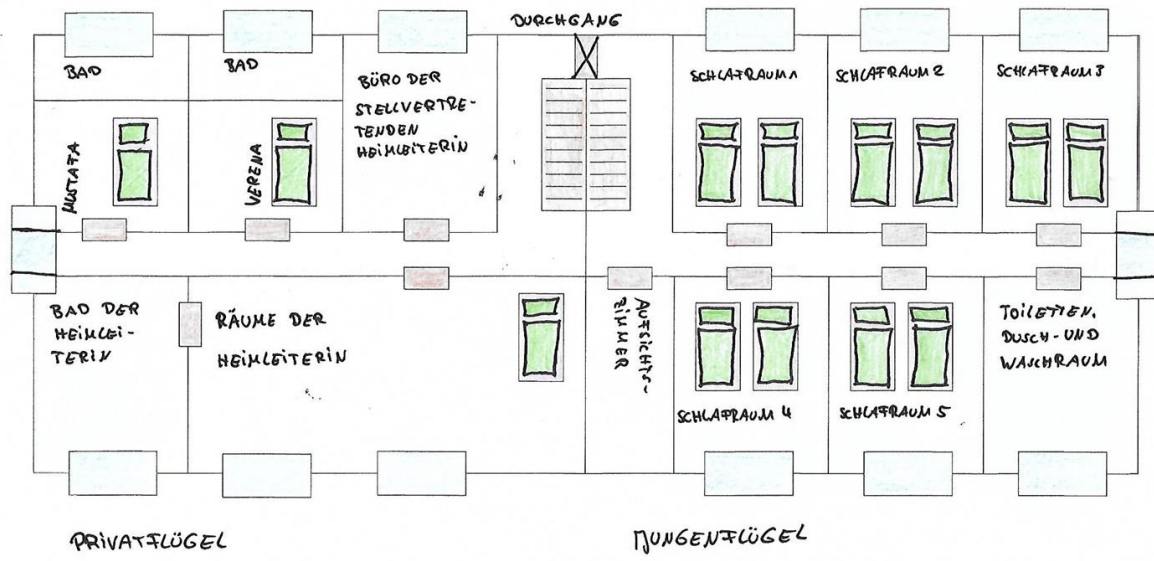 DURCHGANG
BAD
BAD
BÜRO DER
STELLVERTRE-
TENDEN
HEIMLEITERIN
SCHLAFRAUM 1
SCHLAFRAUM 2
SCHLAFRAUM 3
MUSTAFA
VERENA
BAD DER
HEIMLEI-
TERIN
RÄUME DER
HEIMLEITERIN
AUFSICHTS-
ZIMMER
SCHLAFRAUM 4
SCHLAFRAUM 5
TOILETTEN.
DUSCH- UND
WASCHRAUM
PRIVATFLÜGEL
JUNGENFLÜGEL